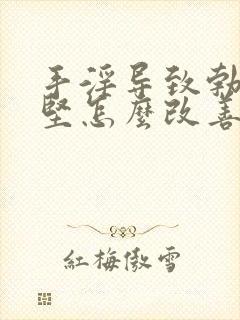 手淫导致勃
坚怎麽改善
紅梅傲雪